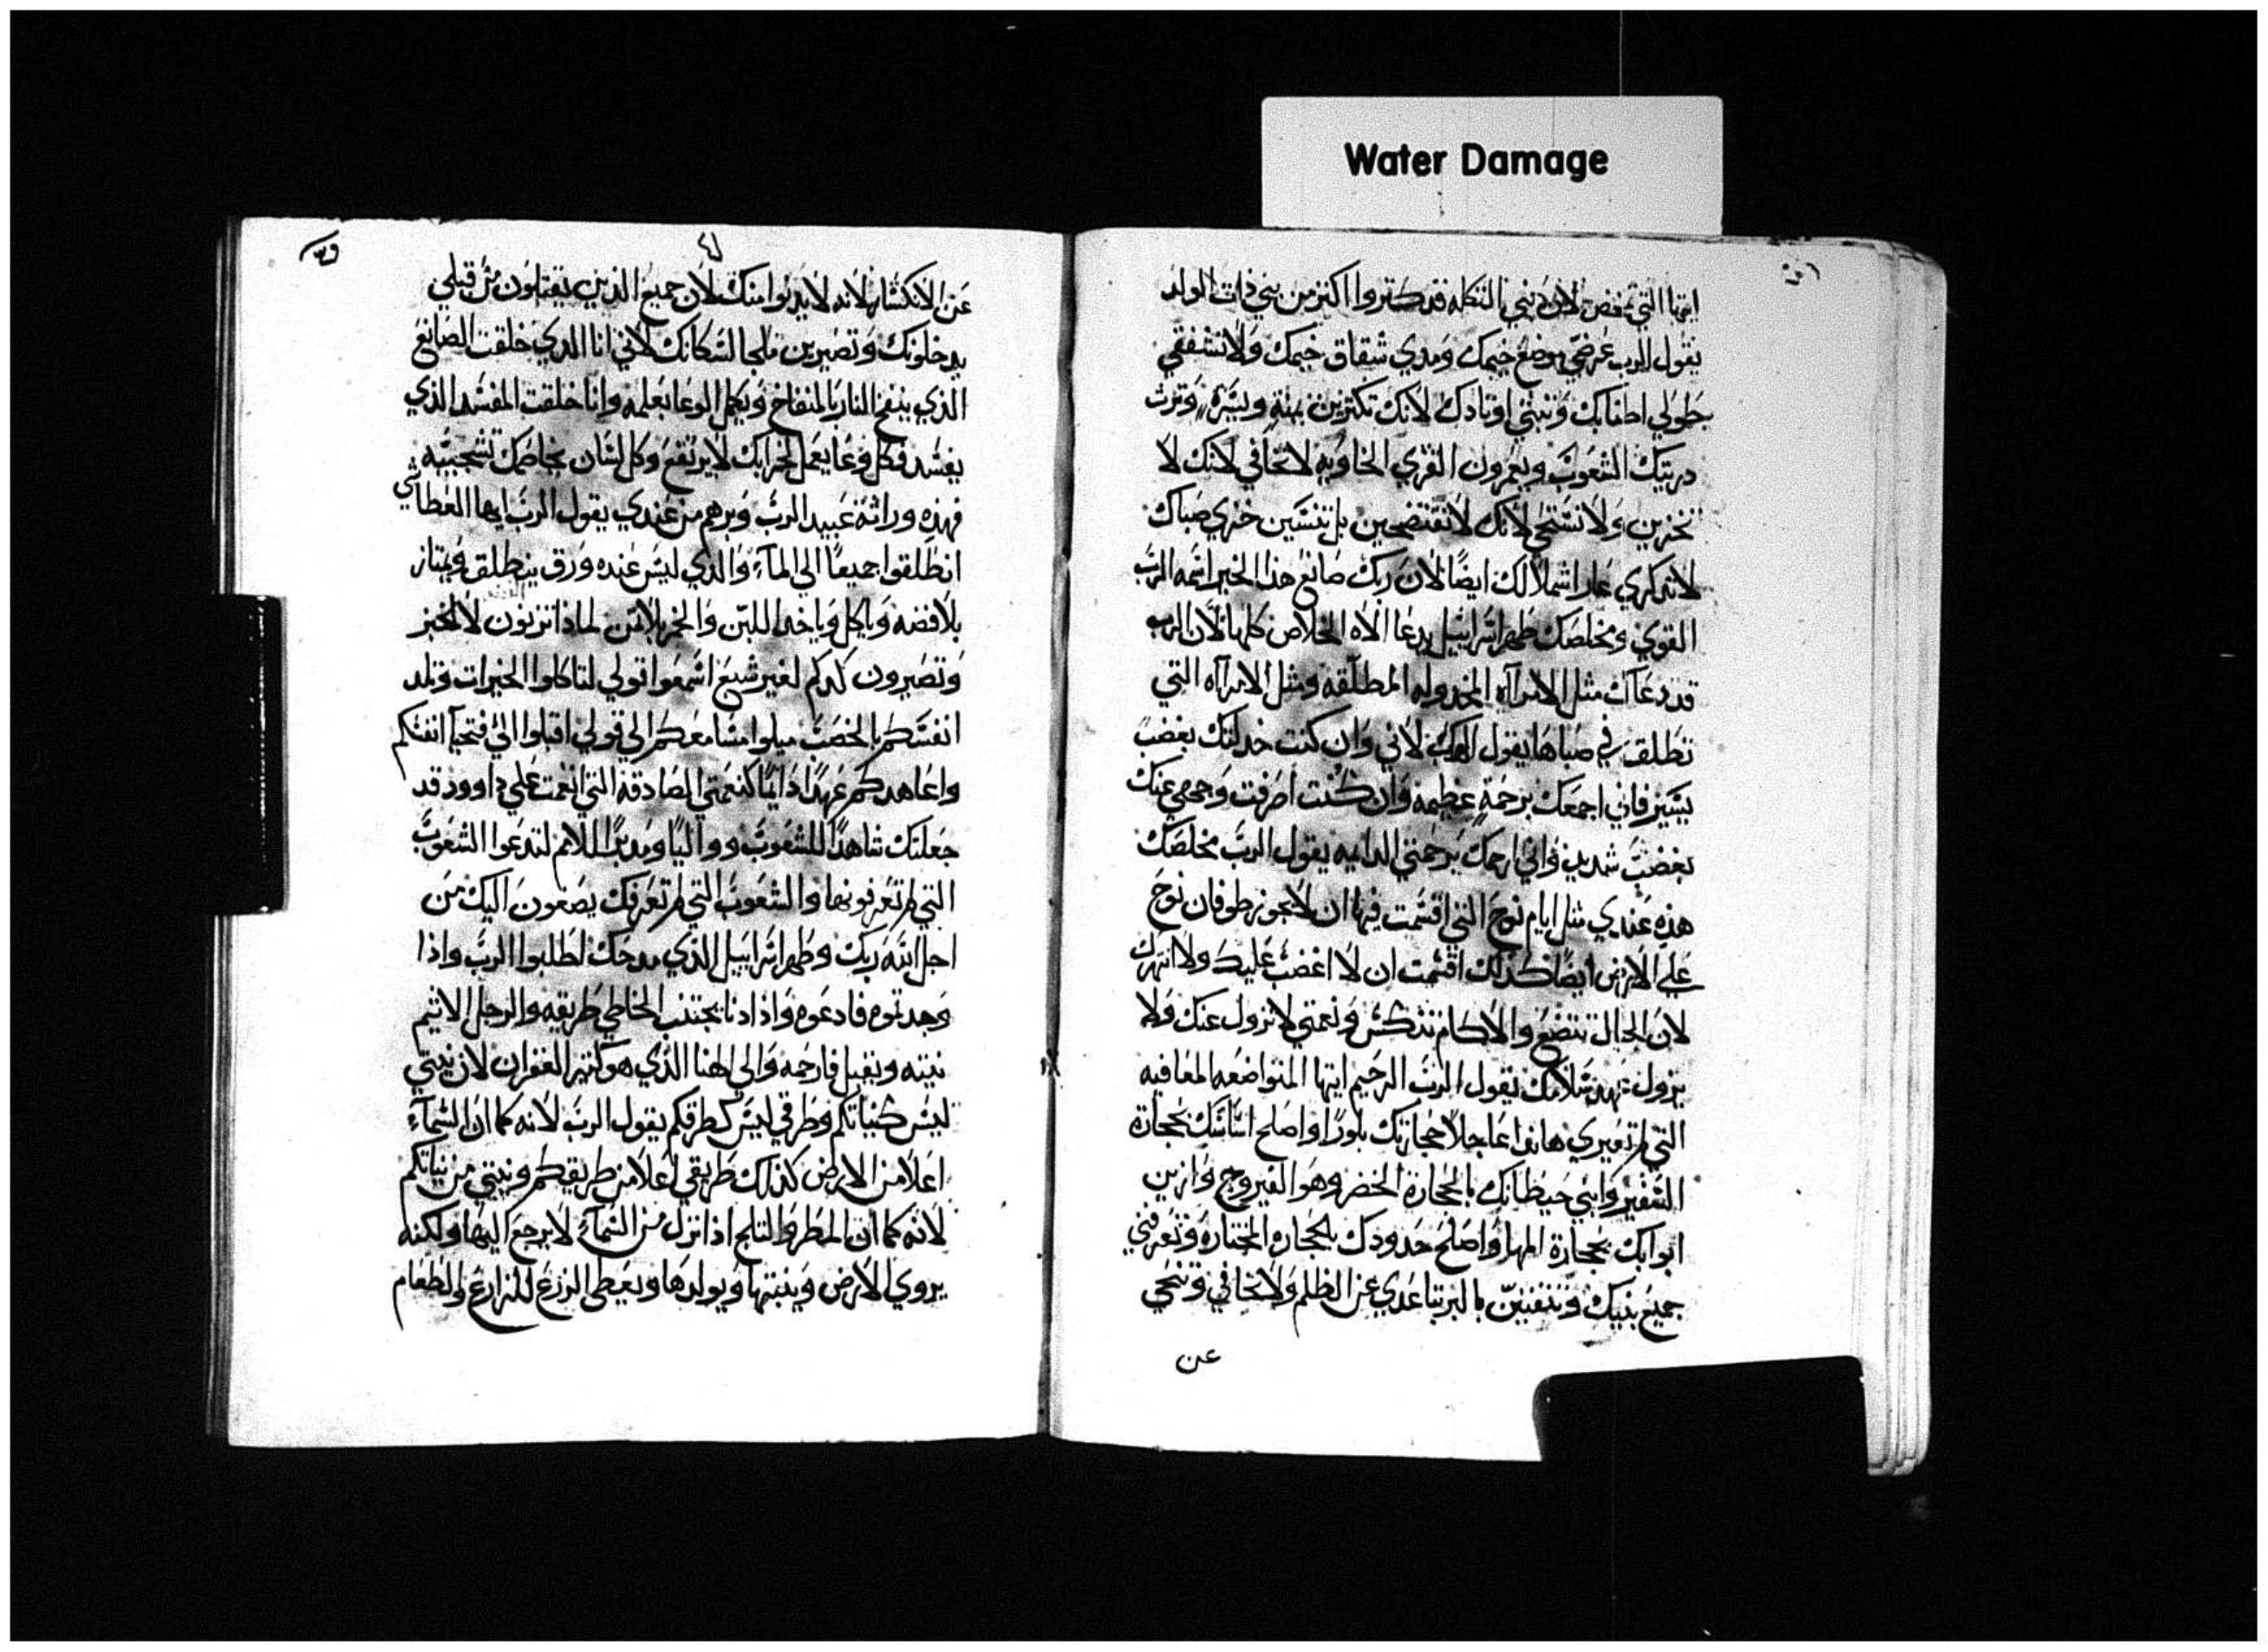 Water Damage
ايتها التي تمخض لان بني الثكله قد كتروا اكتر من بني ذات الولد
يقول الرب عرضي موضع خيمك ومدي شقاق خيمك ولا تشفقي
طولي اطنابك وثبتي اوتادك لانك تكترين يمنة ويسرة وترث
دريتك الشعوب ويعمرون القري الخاويه لا تخافي لانك لا
تخزين ولا تستحي لانك لا تفتضحين بل تنسين خزي صباك
لا تدكري عار ارملالك ايضا لان ربك صانع هذا الخير اسمه الرب
القوي ومخلصك طهر اسراييل يدعا الاه الخلاص كلها لان الرب
قد دعاك مثل الامرآه المخدوله المطلقه ومثل الامرآه التي
تطلق في صباها يقول الرب لاني وان كنت خدلتك بغضب
يسير فاني اجمعك برحمة عظيمه وان كنت اصرفت وجهي عنك
بغضب شديد فاني ارحمك برحمتي الدايمه يقول الرب مخلصك
هذه عندي مثل ايام نوح التي اقسمت فيها ان لا يجوز طوفان نوح
علي الارض ايضا كذلك اقسمت ان لا اغضب عليك ولا انتهرك
لان الجبال تتضع والاكام تندكس ونعمتي لا تزول عنك ولا
يزول عهد سلامك يقول الرب الرحيم ايتها المتواضعه المعاقبه
التي لم تعزي هانذا عاجلا حجارتك بلورا واصلح اساسك بحجارة
السفير وابني حيطانك بالحجارة الخضر وهو الفيروج وازين
ابوابك بحجارة المها واصلح حدودك بالحجاره المختاره وتعرفني
جميع بنيك وتتقنين بالبر تباعدي عن الظلم ولا تخافي وتنحي
عن
٤١
عن الانكسار لانه لا يدنوا منك لان جميع الذين يقتلون من قبلي
يدخلونك وتصيرين ملجا لسكانك لاني انا الذي خلقت الصانع
الذي ينفخ النار بالمنفاخ ويعمل الوعا بعلمه وانا خلقت المفسد الذي
يفسد فكل وعا يعمل لخرابك لا يرتفع وكل لسان يخاصمك تشجبيه
فهذه وراثة عبيد الرب وبرهم من عندي يقول الرب ايها العطاشي
انطلقوا جميعا الي المآء والذي ليس عنده ورق ينطلق ويمتاز
بلا فضه وياكل وياخد اللبن والخمر بلا تمن لماذا تزنون لا لخبز
وتصيرون كدكم لغير شبع اسمعوا قولي لتاكلوا الخيرات وتلد
انفسكم بالخصب ميلوا مسامعكم الي قولي اقبلوا الي فتحيآ انفسكم
واعاهدكم عهدا دايما كنعمتي الصادقه التي انعمت علي داوود قد
جعلتك شاهدا للشعوب وواليا ومدبرا للامم لتدعوا الشعوب
التي لم تعرفونها والشعوب التي لم تعرفك يصغون اليك من
اجل انه ربك وطهر اسراييل الذي مدحك اطلبوا الرب واذا
وجدتوه فادعوه واذا دنا يجتنب الخاطي طريقه والرجل الاثيم
نيته ويقبل فارحمه والي الهنا الذي هو كتير الغفران لان نيتي
ليس كنياتكم وطرقي ليس كطرقكم يقول الرب لانه كما ان السمآء
اعلا من الارض كذلك طريقي اعلا من طريقكم ونيتي من نياتكم
لانه كما ان المطر والتلج اذا نزل من السمآء لا يرجع اليها ولكنه
يروي الارض وينبتها ويولدها ويعطي الزرع للزارع والطعام